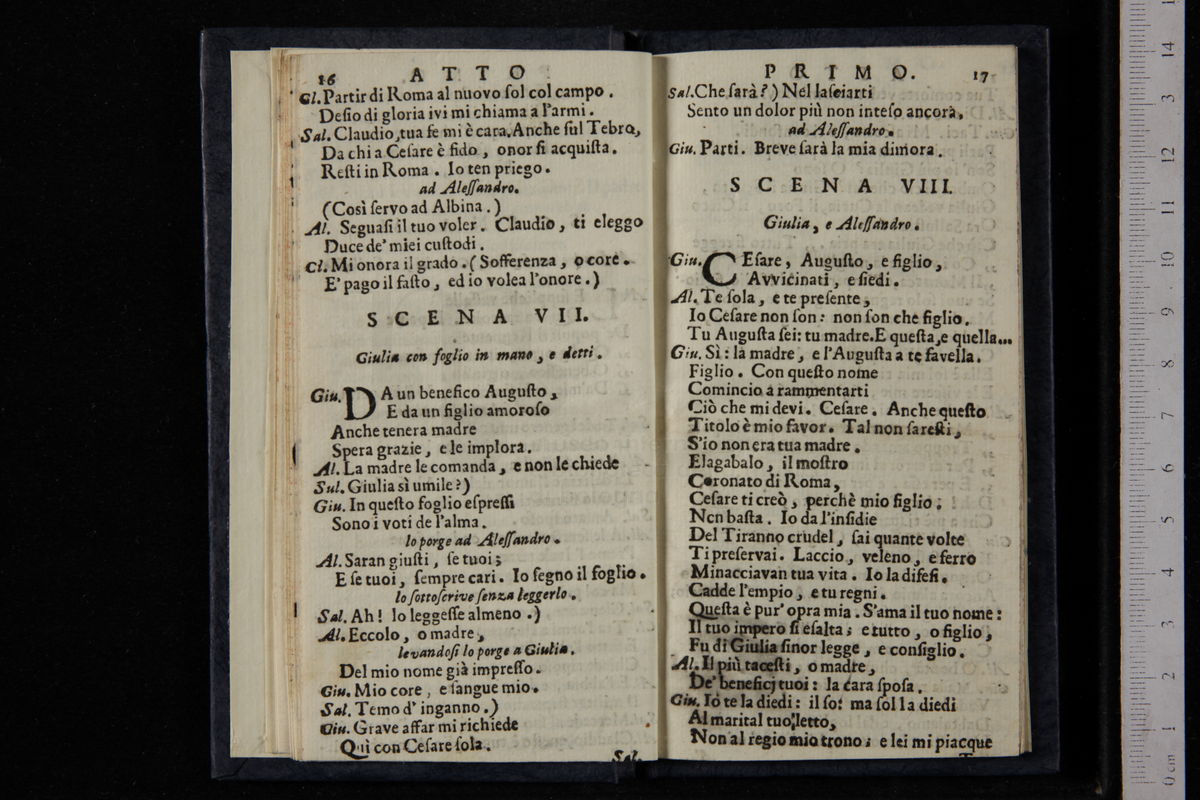 16 ATTO
Cl. Partir di Roma al nuovo ſol col campo.
Deſio di gloria ivi mi chiama a l'armi.
Sal. Claudio, tua fe mi è cara. Anche ſul Tebro,
Da chi a Ceſare è fido, onor ſi acquiſta.
Reſti in Roma. Io ten priego.
ad Aleſſandro.
(Così ſervo ad Albina.)
Al. Seguaſi il tuo voler. Claudio, ti eleggo
Duce de' miei cuſtodi.
Cl. Mi onora il grado. (Sofferenza, o core.
E' pago il faſto, ed io volea l'onore.)
SCENA VII.
Giulia con foglio in mano, e detti.
Giu. DA un benefico Auguſto,
E da un figlio amoroſo
Anche tenera madre
Spera grazie, e le implora.
Al. La madre le comanda, e non le chiede
Sal. Giulia sì umile?)
Giu. In queſto foglio eſpreſſi
Sono i voti de l'alma.
lo porge ad Aleſſandro.
Al. Saran giuſti, ſe tuoi;
E ſe tuoi, ſempre cari. Io ſegno il foglio.
lo ſottoſcrive ſenza leggerlo.
Sal. Ah! lo leggeſſe almeno.)
Al. Eccolo, o madre,
levandoſi lo porge a Giulia.
Del mio nome già impreſſo.
Giu. Mio core, e ſangue mio.
Sal. Temo d' inganno.)
Giu. Grave affar mi richiede
Quì con Ceſare ſola.
Sal.
PRIMO. 17
Sal. Che ſarà?) Nel laſciarti
Sento un dolor più non inteſo ancora,
ad Aleſſandro.
Giu. Parti. Breve ſarà la mia dimora.
SCENA VIII.
Giulia, e Aleſſandro.
Giu. CEſare, Auguſto, e figlio,
Avvicinati, e ſiedi.
Al. Te ſola, e te preſente,
Io Ceſare non ſon: non ſon che figlio.
Tu Auguſta ſei: tu madre. E queſta, e quella...
Giu. Sì: la madre, e l'Auguſta a te favella.
Figlio. Con queſto nome
Comincio a rammentarti
Ciò che mi devi. Ceſare. Anche queſto
Titolo è mio favor. Tal non ſareſti,
S'io non era tua madre.
Elagabalo, il moſtro
Coronato di Roma,
Ceſare ti creò, perchè mio figlio;
Non baſta. Io da l'inſidie
Del Tiranno crudel, ſai quante volte
Ti preſervai. Laccio, veleno, e ferro
Minacciavan tua vita. Io la difeſi.
Cadde l'empio, e tu regni.
Queſta è pur' opra mia. S'ama il tuo nome:
Il tuo impero ſi eſalta; e tutto, o figlio,
Fu di Giulia ſinor legge, e conſiglio.
Al. Il più taceſti, o madre,
De' beneficj tuoi: la cara ſpoſa.
Giu. Io te la diedi: il ſo: ma ſol la diedi
Al marital tuo letto,
Non al regio mio trono; e lei mi piacque